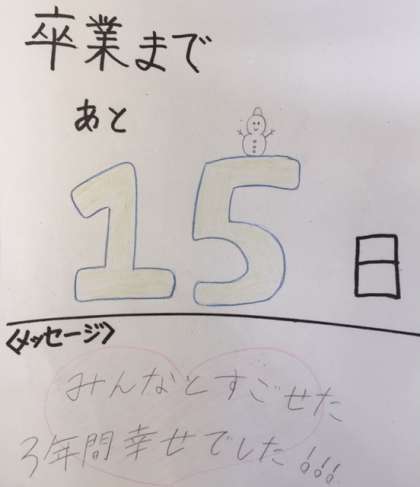 卒業まで
あと
15日
〈メッセージ〉
みんなとすごせた
3年間幸せでした!!!